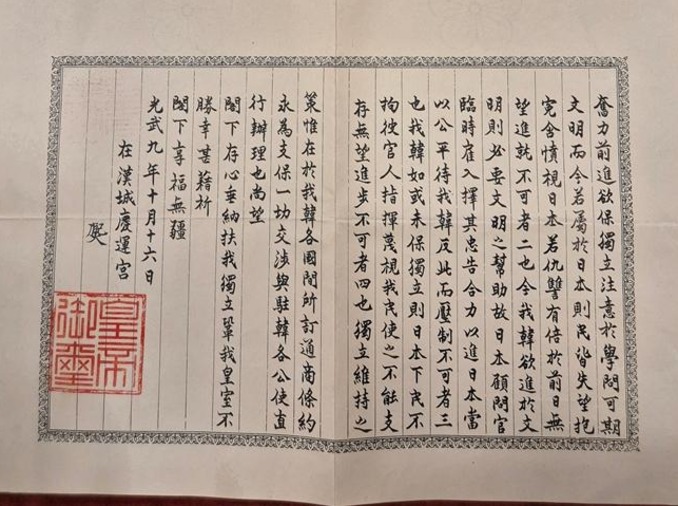 奮力前進欲保獨立注意於學問可期
文明而今若屬於日本則民皆失望抱
冤含憤視日本若仇讐有倍於前日無
望進就不可者二也今我韓欲進於文
明則必要文明之幇助故日本顧問官
臨時雇入擇其忠告合力以進日本當
以公平待我韓反此而壓制不可者三
也我韓如或未保獨立則日本下民不
拘彼官人指揮蔑視我民使之不能支
存無望進步不可者四也獨立維持之
策惟在於我韓各國間所訂通商條約
永為支保一切交涉與駐韓各公使直
行辦理也尚望
閣下存心垂納扶我獨立鞏我皇室不
勝幸甚藉祈
閣下享福無疆
光武九年十月十六日
在漢城慶運宮
㷩
皇帝御璽